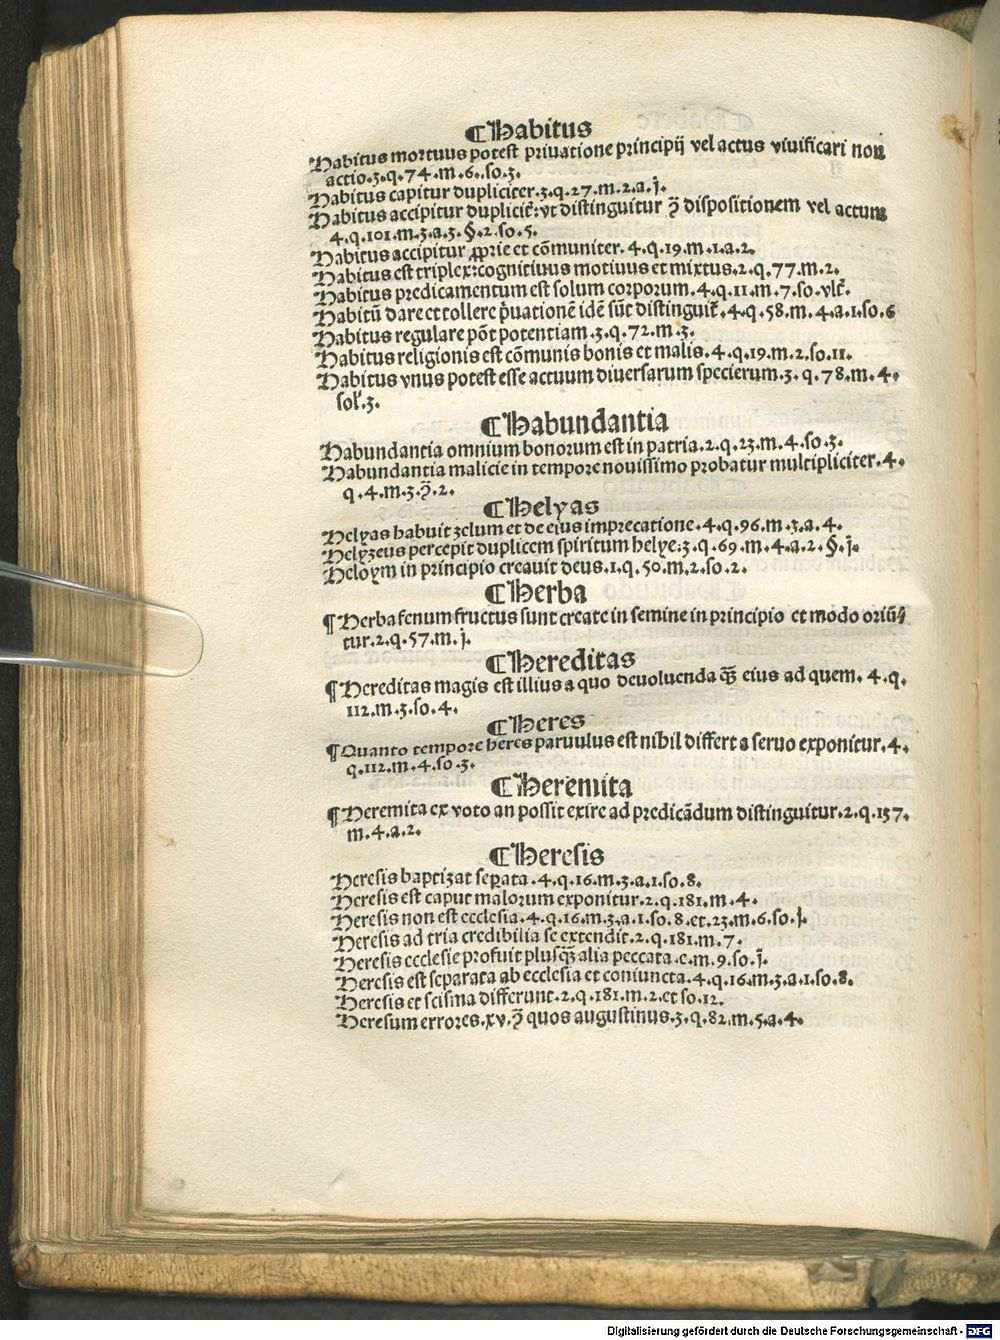 ¶Habitus
Habitus mortuus potest priuatione principij vel actus viuificari non
actio.3.q.74.m.6.so.3.
Habitus capitur dupliciter.3.q.27.m.2.a.j.
Habitus accipitur duplicit̃:vt distinguitur ꝯ̃ dispositionem vel actum
4.q.101.m.3.a.3.§.2.so.5.
Habitus accipitur ꝓprie et cõmuniter.4.q.19.m.1.a.2.
Habitus est triplex:cognitiuus motiuus et mixtus.2.q.77.m.2.
Habitus predicamentum est solum corporum.4.q.11.m.7.so.vlt̃.
Habitũ dare et tollere p̃uationẽ idẽ sũt distinguit̃.4.q.58.m.4.a.1.so.6
Habitus regulare põt potentiam.3.q.72.m.3.
Habitus religionis est cõmunis bonis et malis.4.q.19.m.2.so.11.
Habitus vnus potest esse actuum diuersarum specierum.3.q.78.m.4.
sol̃.3.
¶Habundantia
Habundantia omnium bonorum est in patria.2.q.23.m.4.so.3.
Habundantia malicie in tempore nouissimo probatur multipliciter.4.
q.4.m.3.ꝯ̃.2.
¶Helyas
Helyas habuit zelum et de eius imprecatione.4.q.96.m.3.a.4.
Helyzeus percepit duplicem spiritum helye.3.q.69.m.4.a.2.§.j.
Heloym in principio creauit deus.1.q.50.m.2.so.2.
¶Herba
¶Herba fenum fructus sunt create in semine in principio et modo oriũ⸗
tur.2.q.57.m.j.
¶Hereditas
¶Hereditas magis est illius a quo deuoluenda q̃ȝ eius ad quem.4.q.
112.m.3.so.4.
¶Heres
¶Quanto tempore heres paruulus est nihil differt a seruo exponitur.4.
q.112.m.4.so.3.
¶Heremita
¶Heremita ex voto an possit exire ad predicãdum distinguitur.2.q.157.
m.4.a.2.
¶Heresis
Heresis baptizat seꝑata.4.q.16.m.3.a.1.so.8.
Heresis est caput malorum exponitur.2.q.181.m.4.
Heresis non est ecclesia.4.q.16.m.3.a.1.so.8.et.23.m.6.so.j.
Heresis ad tria credibilia se extendit.2.q.181.m.7.
Heresis ecclesie profuit plusq̃ȝ alia peccata.e.m.9.so.j.
Heresis est separata ab ecclesia et coniuncta.4.q.16.m.3.a.1.so.8.
Heresis et scisma differunt.2.q.181.m.2.et so.12.
Heresum errores.xv.ꝯ̃ quos augustinus.3.q.82.m.5.a.4.
Digitalisierung gefördert durch die Deutsche Forschungsgemeinschaft - DFG